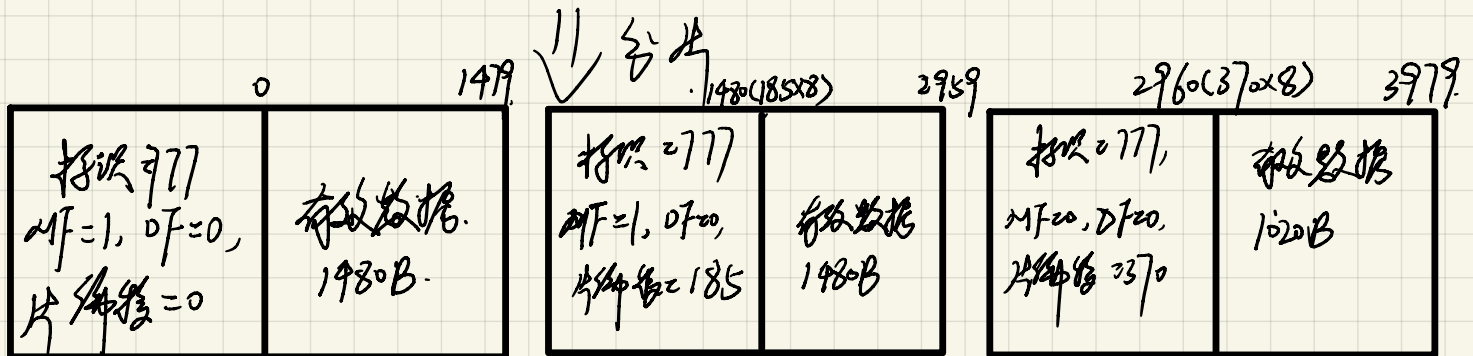 分片
0
1479
1480(185×8)
2959
2960(370×8)
3979
标识=777
MF=1, DF=0,
片偏移=0
有效数据.
1480B.
标识=777
MF=1, DF=0,
片偏移=185
有效数据
1480B
标识=777,
MF=0, DF=0,
片偏移=370
有效数据
1020B